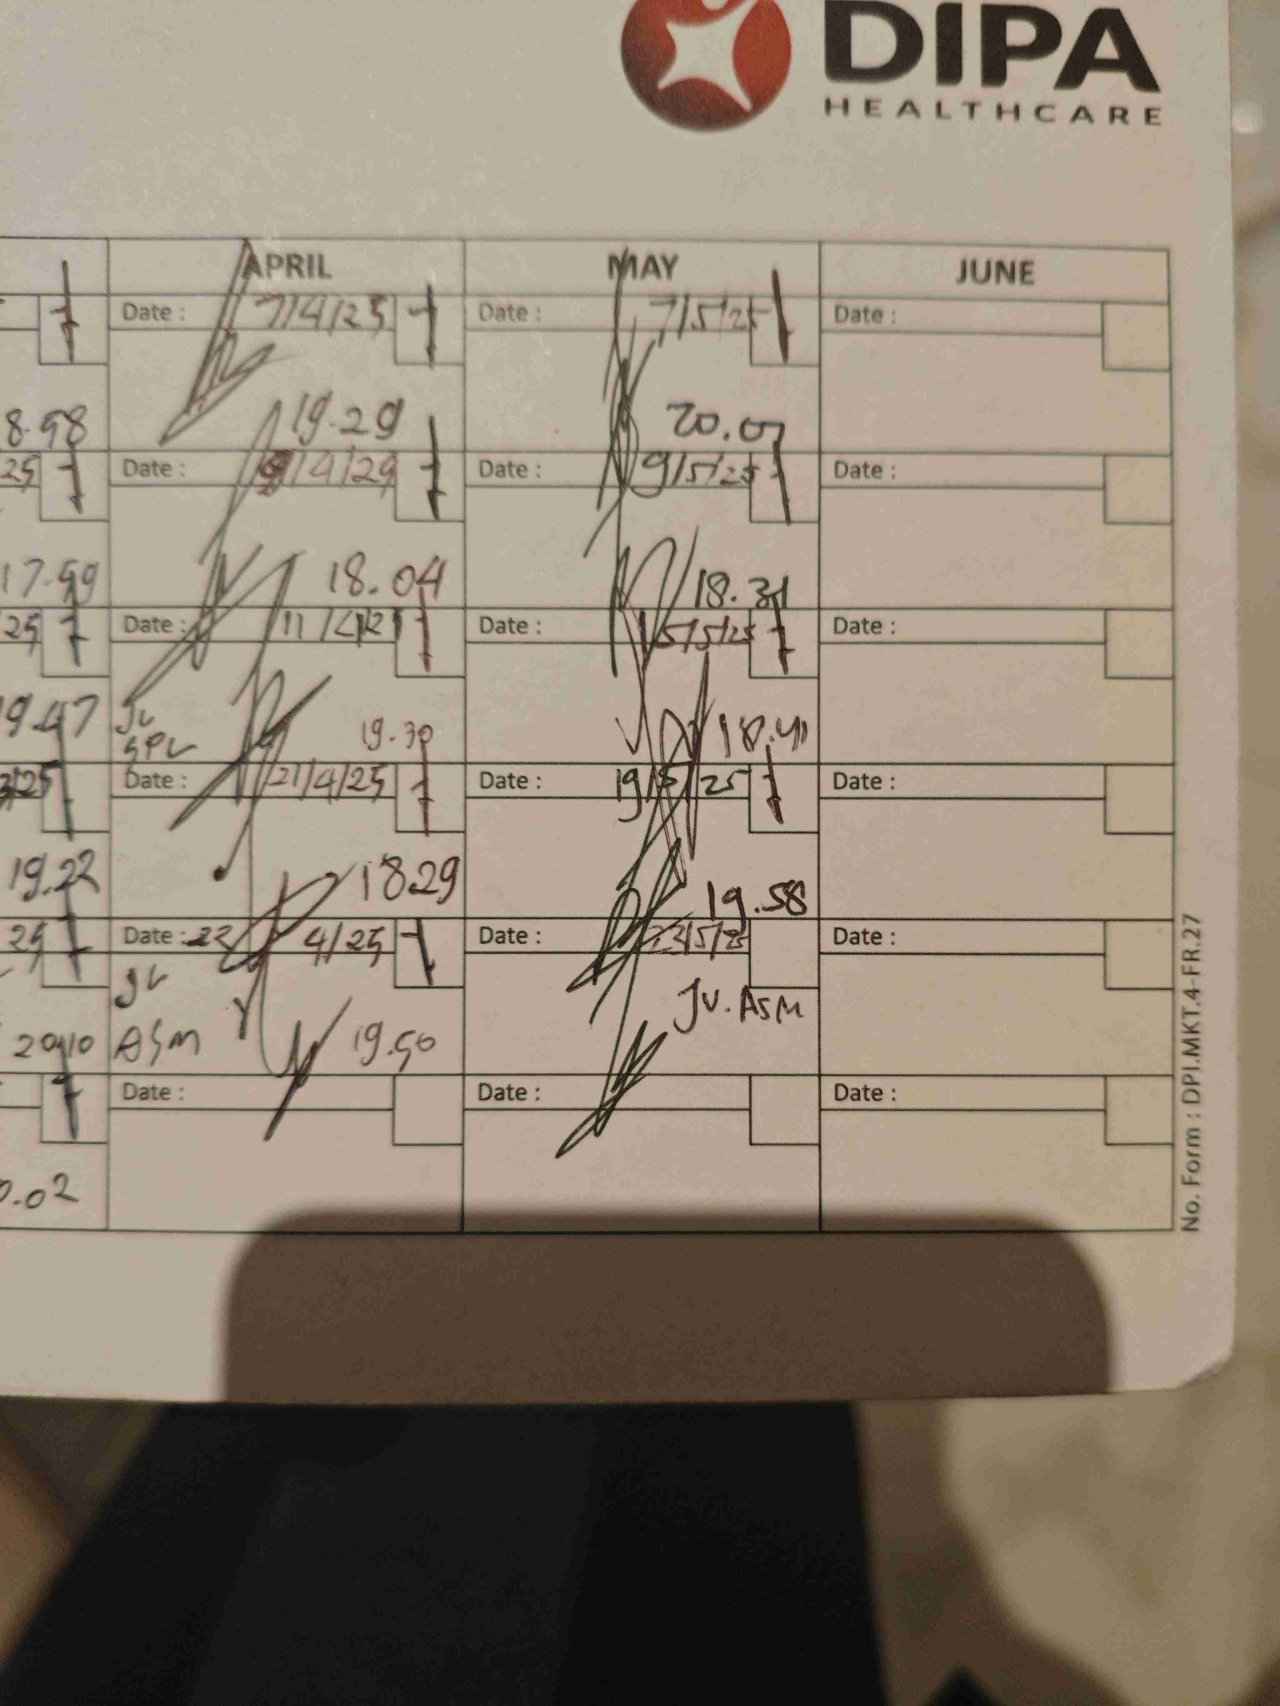 DIPA
HEALTHCARE
APRIL MAY JUNE
Date : 7/4/25 Date : 7/5/25 Date :
8.58 19.29 20.07
25 Date : 9/4/25 Date : 9/5/25 Date :
17.59 18.04 18.31
25 Date : 11/4/2 Date : 15/5/25 Date :
19.47 JV SPV 19.30 18.41
Date : 21/4/25 Date : 19/5/25 Date :
19.22 1829 19.58
25 Date : 22 4/25 Date : 23/5/25 Date :
20.10 JV ASM 19.50 JV. ASM
Date : Date : Date :
.02
No. Form : DPI.MKT.4-FR.27